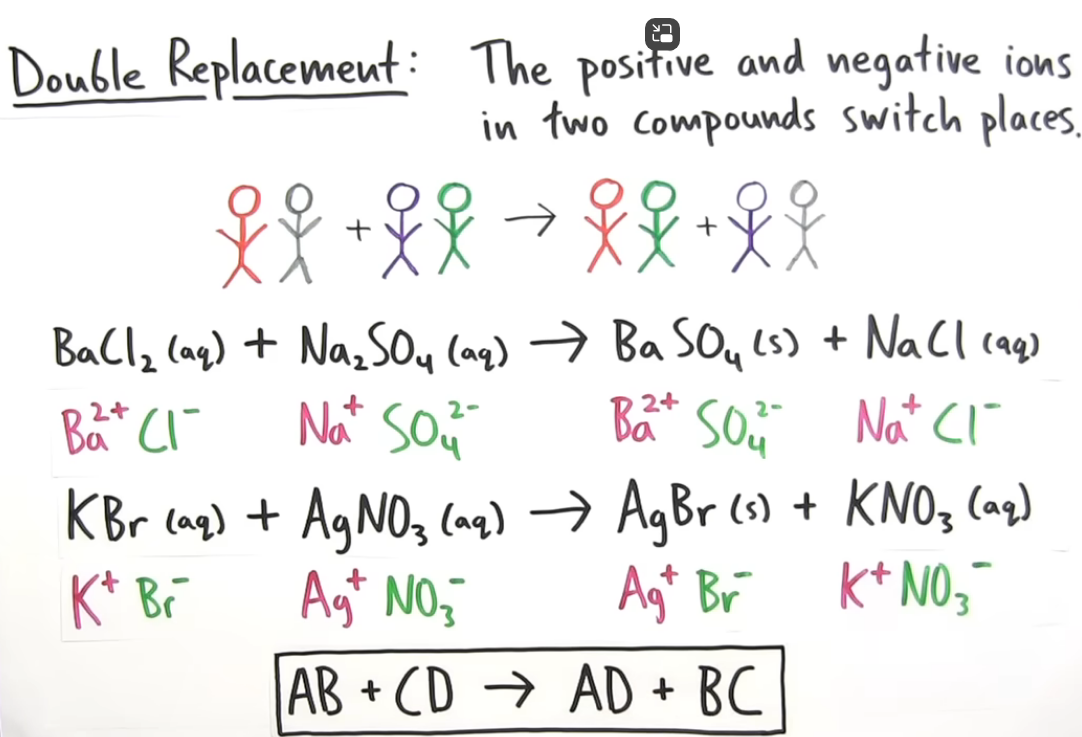 Double Replacement: The positive and negative ions
in two compounds switch places.
+ → +
BaCl₂ (aq) + Na₂SO₄ (aq) → BaSO₄ (s) + NaCl (aq)
Ba²⁺ Cl⁻ Na⁺ SO₄²⁻ Ba²⁺ SO₄²⁻ Na⁺ Cl⁻
KBr (aq) + AgNO₃ (aq) → AgBr (s) + KNO₃ (aq)
K⁺ Br⁻ Ag⁺ NO₃⁻ Ag⁺ Br⁻ K⁺ NO₃⁻
AB + CD → AD + BC